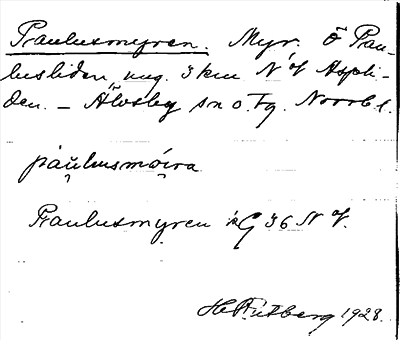 Paulusmyren. Myr. Ö Pau-
lusliden, ung. 3 km N of Aspli-
den. – Älvsby sn o. tg. Norrb. l.
pau̯lusmói̯ra
Paulusmyren G 36 N of.
H Rutberg 1928.